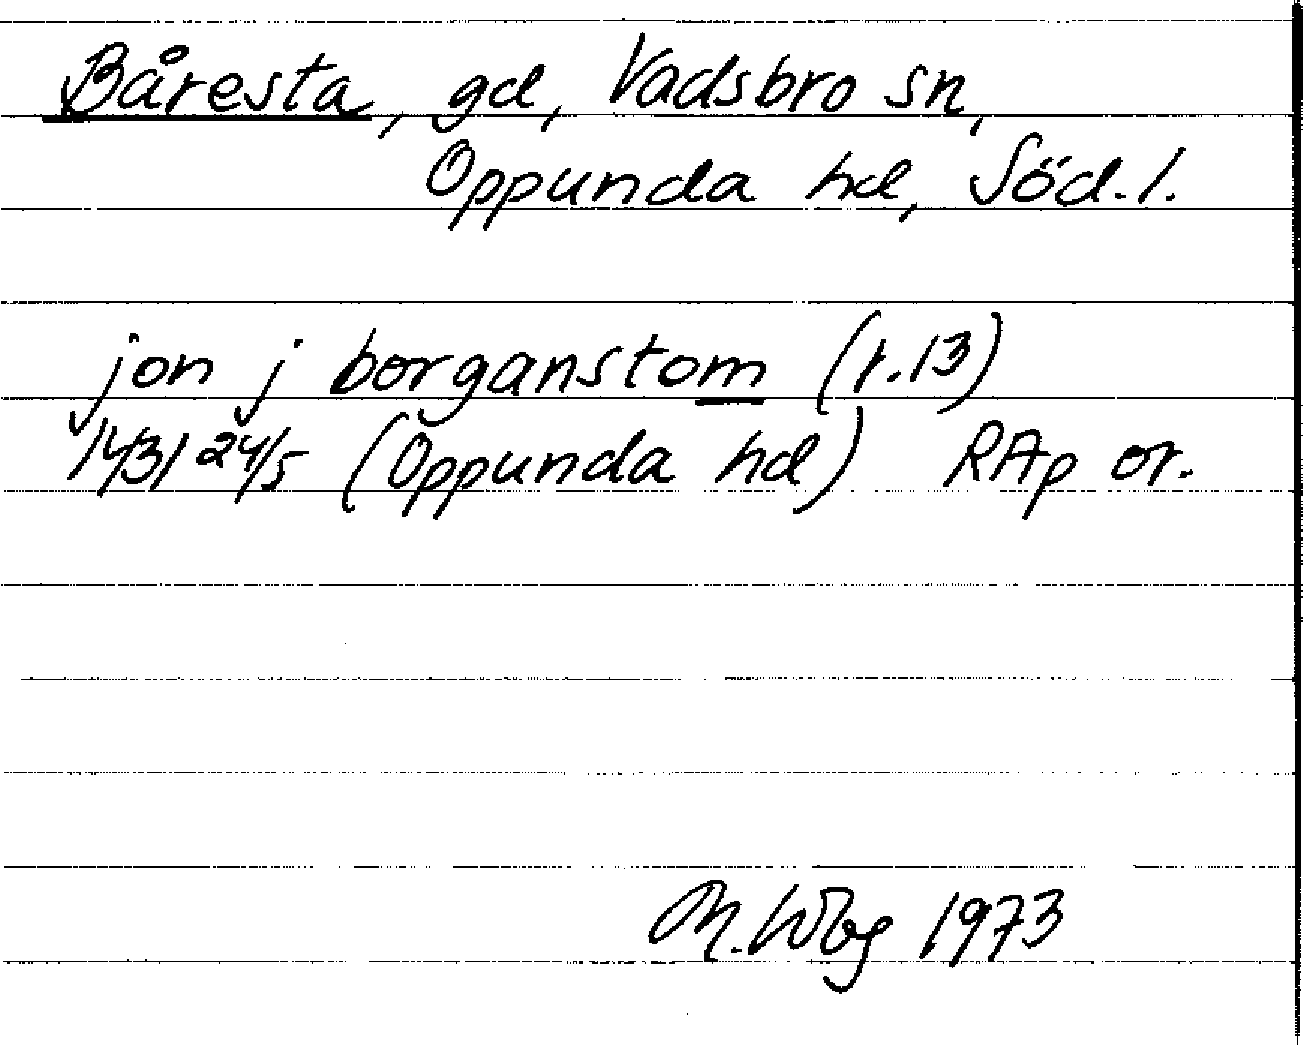 Båresta, gd, Vadsbro sn,
Oppunda hd, Söd.l.
jon j borganstom (r.13)
1431 24/5 (Oppunda hd) RAp or.
M. Wbg 1973